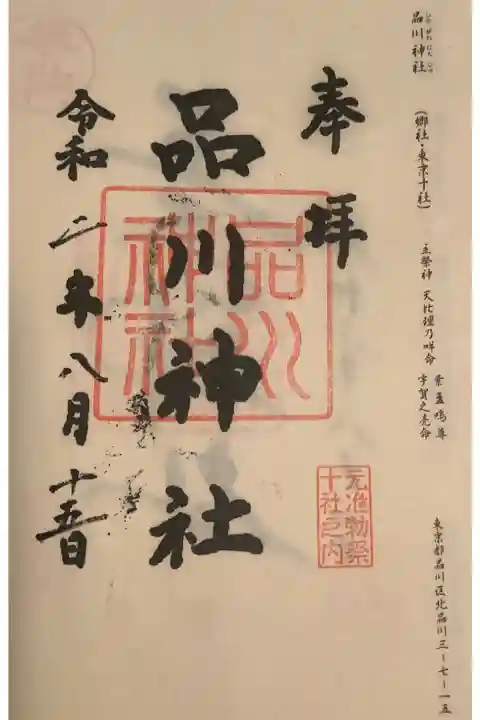 品川神社
しながわじんじゃ
（郷社・東京十社）
主祭神 天比理乃咩命
素盞嗚尊
宇賀之売命
東京都品川区北品川三－七－一五
奉拝
品川神社
品川神社
元准勅祭
十社之内
令和二年八月十五日